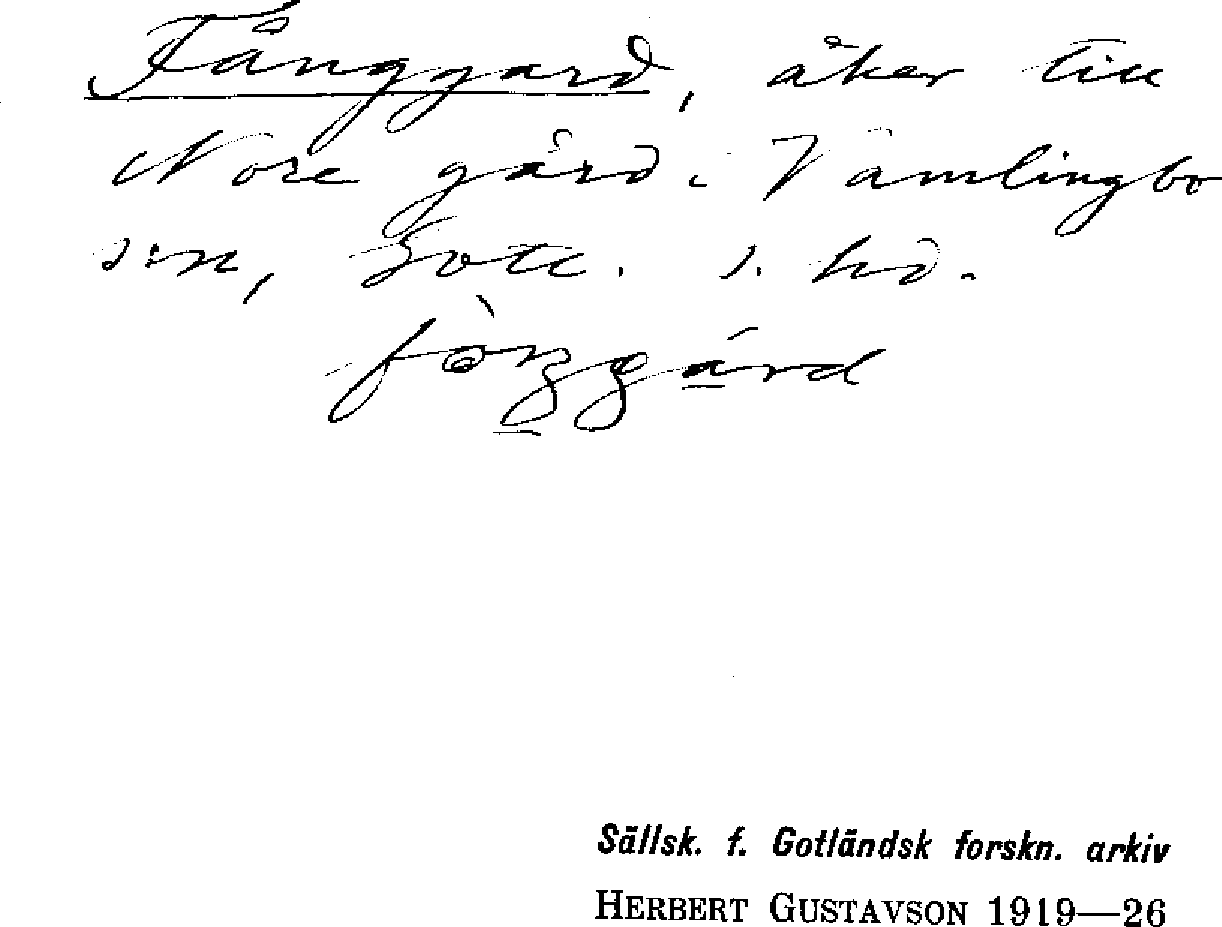 Fånggard, åker till
Nore gård i Vamlingbo
s:n, Gotl. s. hd.
fòŋgard
Sällsk. f. Gotländsk forskn. arkiv
HERBERT GUSTAVSON 1919—26